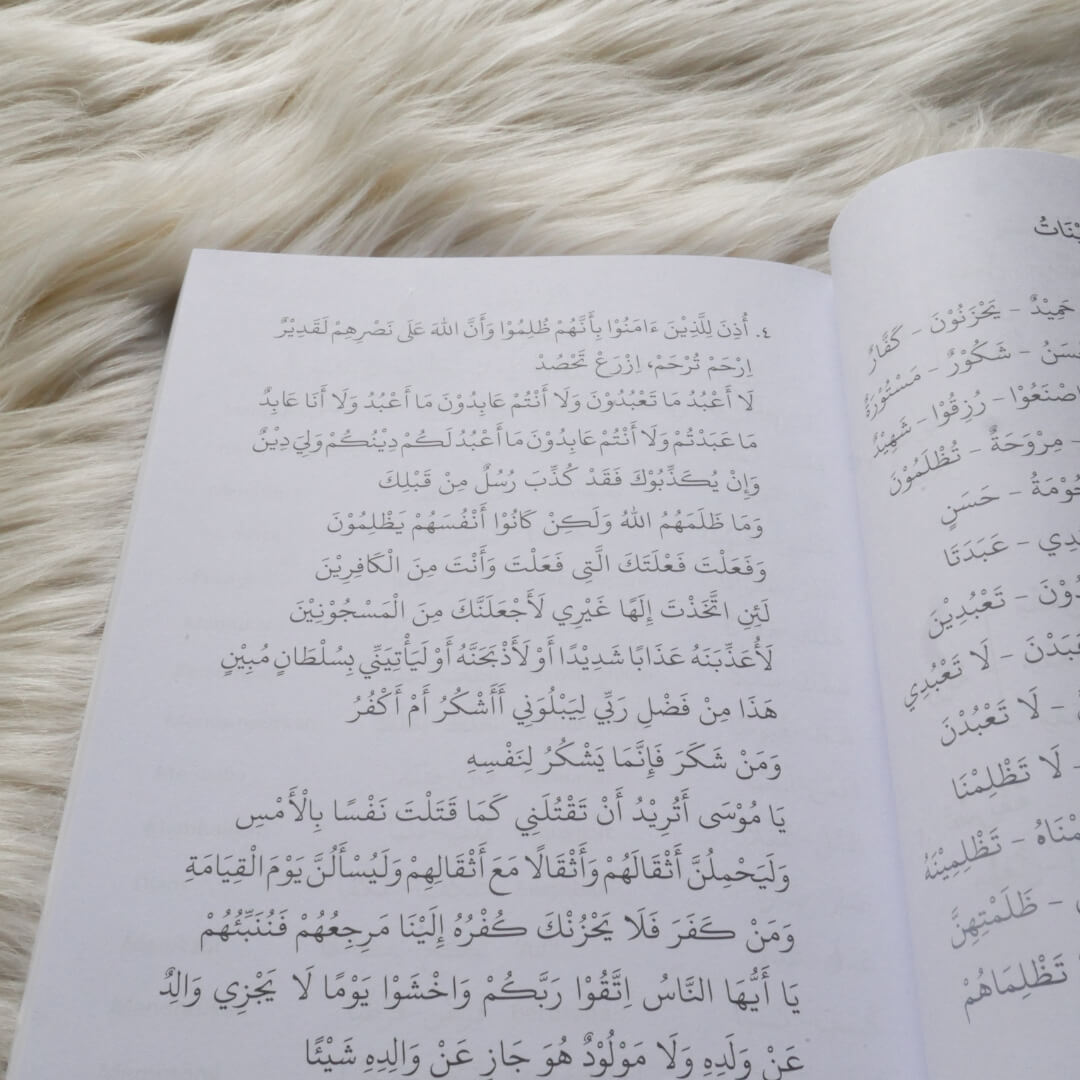 ٤. أُذِنَ لِلَّذِيْنَ ءَامَنُوْا بِأَنَّهُمْ ظُلِمُوْا وَأَنَّ اللهَ عَلَى نَصْرِهِمْ لَقَدِيْرٌ
اِرْحَمْ تُرْحَمْ، اِزْرَعْ تَحْصُدْ
لَا أَعْبُدُ مَا تَعْبُدُوْنَ وَلَا أَنْتُمْ عَابِدُوْنَ مَا أَعْبُدُ وَلَا أَنَا عَابِدٌ
مَا عَبَدْتُمْ وَلَا أَنْتُمْ عَابِدُوْنَ مَا أَعْبُدُ لَكُمْ دِيْنُكُمْ وَلِيَ دِيْنٌ
وَإِنْ يُكَذِّبُوْكَ فَقَدْ كُذِّبَ رُسُلٌ مِنْ قَبْلِكَ
وَمَا ظَلَمَهُمُ اللهُ وَلَكِنْ كَانُوْا أَنْفُسَهُمْ يَظْلِمُوْنَ
وَفَعَلْتَ فَعْلَتَكَ الَّتِى فَعَلْتَ وَأَنْتَ مِنَ الْكَافِرِيْنَ
لَئِنِ اتَّخَذْتَ إِلَهًا غَيْرِي لَأَجْعَلَنَّكَ مِنَ الْمَسْجُوْنِيْنَ
لَأُعَذِّبَنَهُ عَذَابًا شَدِيْدًا أَوْ لَأَذْبَحَنَّهُ أَوْ لَيَأْتِيَنِّي بِسُلْطَانٍ مُبِيْنٍ
هَذَا مِنْ فَضْلِ رَبِّي لِيَبْلُوَنِي أَأَشْكُرُ أَمْ أَكْفُرُ
وَمَنْ شَكَرَ فَإِنَّمَا يَشْكُرُ لِنَفْسِهِ
يَا مُوْسَى أَتُرِيْدُ أَنْ تَقْتُلَنِي كَمَا قَتَلْتَ نَفْسًا بِالْأَمْسِ
وَلَيَحْمِلُنَّ أَثْقَالَهُمْ وَأَثْقَالًا مَعَ أَثْقَالِهِمْ وَلَيُسْأَلُنَّ يَوْمَ الْقِيَامَةِ
وَمَنْ كَفَرَ فَلَا يَحْزُنْكَ كُفْرُهُ إِلَيْنَا مَرجِعُهُمْ فَنُنَبِّئُهُمْ
يَا أَيُّهَا النَّاسُ اِتَّقُوْا رَبَّكُمْ وَاخْشَوْا يَوْمًا لَا يَجْزِي وَالِدٌ
عَنْ وَلَدِهِ وَلَا مَوْلُوْدٌ هُوَ جَازٍ عَنْ وَالِدِهِ شَيْئًا
حَمِيْدٌ - يَحْزَنُوْنَ - كَفَّارٌ
شَكُوْرٌ - مَسْتُوْرَةٌ
رُزِقُوْا - شَهِيْدٌ
مِرْوَحَةٌ - تُظْلَمُوْنَ
حَسَنٍ
عَبَدَتَا
تَعْبُدِيْنَ
لَا تَعْبُدِي
لَا تَعْبُدْنَ
لَا تَظْلِمْنَا
تَظْلِمِيْنَهُ
ظَلَمْتِهِنَّ
تَظْلِمَاهُمْ